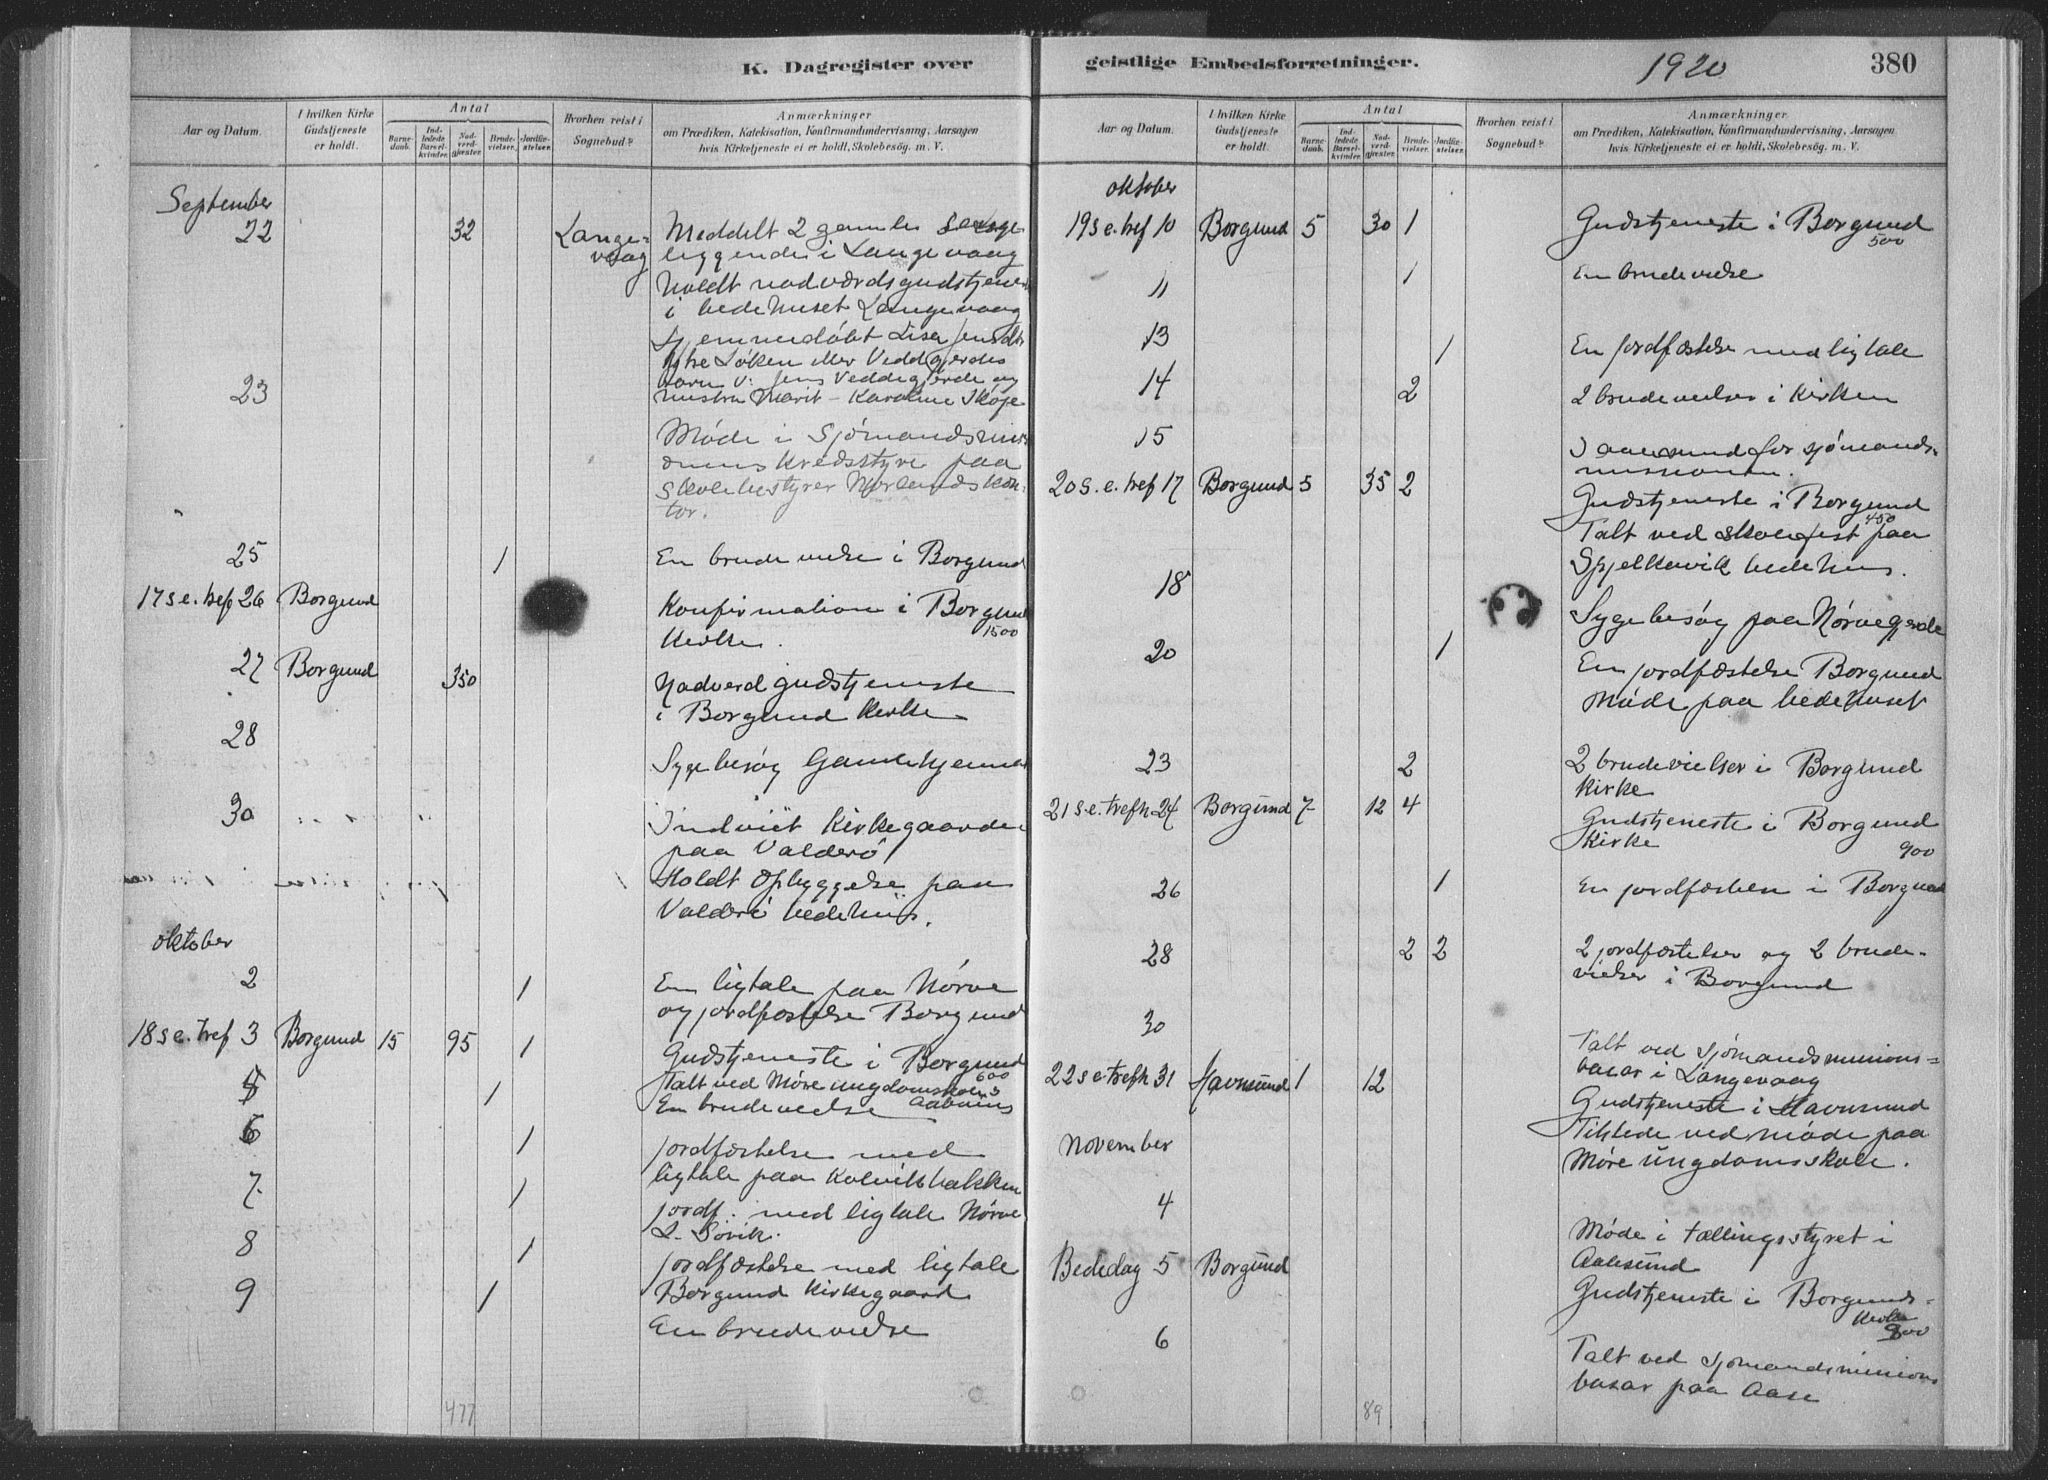 K. Dagregister over
Antal
Aar og Datum.
I hvilken Kirke
Gudstjeneste
er holdt.
Barne-
daab.
Ind-
ledede
Barsel-
kvinder.
Nad-
verd-
gjester.
Brude-
vielser.
Jordfæ-
stelser.
Hvorhen reist i
Sognebud?
Anmærkninger
om Prædiken, Katekisation, Konfirmandundervisning, Aarsagen
hvis Kirketjeneste ei er holdt, Skolebesøg. m. V.
September
22 32 Lange-
vaag
Meddelt 2 gamle
liggende i Langevaag
Holdt nadverdsgudstjenest
i bedehuset Langevaag
23
Møde i Sjømandsmis
onens Kredsstyre paa
skolebestyrer Kon
tor.
25 1 En brudevielse i Borgund
17 s e. tref 26 Borgund Konfirmation i Borgund
Kirke. 1500
27 Borgund 350 Nadverdgudstjeneste
i Borgund Kirke
28
Sygebesøg Gamlehjemmet
30
Indviet Kirkegaarden
paa Valderø
Holdt Opbyggelse paa
Valderø bedehus.
oktober
2 1 En ligtale paa Nørve
og jordfæstelse Borgund
18 s e. tref 3 Borgund 15 95 1 Gudstjeneste i Borgund
600
Talt ved Møre ungdomsskoles
5 1 En brudevielse
6 1 jordfæstelse med
ligtale paa Kolvikbakken
7 1 jordf. med ligtale Nørve
L. Sovik.
8 1 jordfæstelse med ligtale
Borgund Kirkegaard
9 1
En brudevielse
477
geistlige Embedsforretninger.
1920
380
Antal
Aar og Datum.
I hvilken Kirke
Gudstjeneste
er holdt.
Barne-
daab.
Ind-
ledede
Barsel-
kvinder.
Nad-
verd-
gjester.
Brude-
vielser.
Jordfæ-
stelser.
Hvorhen reist i
Sognebud?
Anmærkninger
om Prædiken, Katekisation, Konfirmandundervisning, Aarsagen
hvis Kirketjeneste ei er holdt, Skolebesøg. m. V.
oktober
19 s e. tref 10 Borgund 5 30 1 Gudstjeneste i Borgund
500
11 1 En brudevielse
13 1 En jordfæstelse med ligtale
14 2 2 brudevielser i Kirken
15
for sjømands-
missionen.
20 s. e. tref 17 Borgund 5 35 2 Gudstjeneste i Borgund
450
Talt ved skolefest paa
Spjelkavik bedehus.
18
Sygebesøg paa Nørvegjerde
20 1 En jordfæstelse Borgund
Møde paa bedehuset
23 2 2 brudevielser i Borgund
Kirke
21 s e. trefh 24 Borgund 7 12 4 Gudstjeneste i Borgund
Kirke 900
26 1 En jordfæstelse i Borgund
28 2 2 2 jordfæstelser og 2 brude-
vielser i Borgund
30
Talt ved Sjømandsmissions-
basar i Langevaag
22 s e trefh 31 Havnsund 1 12
Gudstjeneste i Havnsund
november
Tilstede ved møde paa
Møre ungdomsskole.
4
Møde i tællingsstyret i
Aalesund
Bededag 5 Borgund Gudstjeneste i Borgunds-
Kirke
900
6
Talt ved Sjømandsmissions
basar paa Aase
89